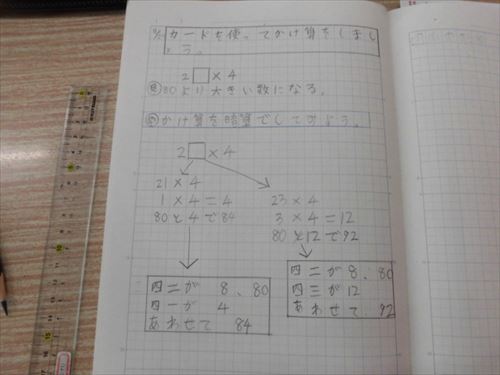 カードを使ってかけ算をしまし
ょう。
2□×4
80より大きい数になる。
かけ算を暗算でしてみよう。
2□×4
21×4
1×4=4
80と4で84
23×4
3×4=12
80と12で92
四二が 8、80
四一が 4
あわせて 84
四二が 8、80
四三が 12
あわせて 92